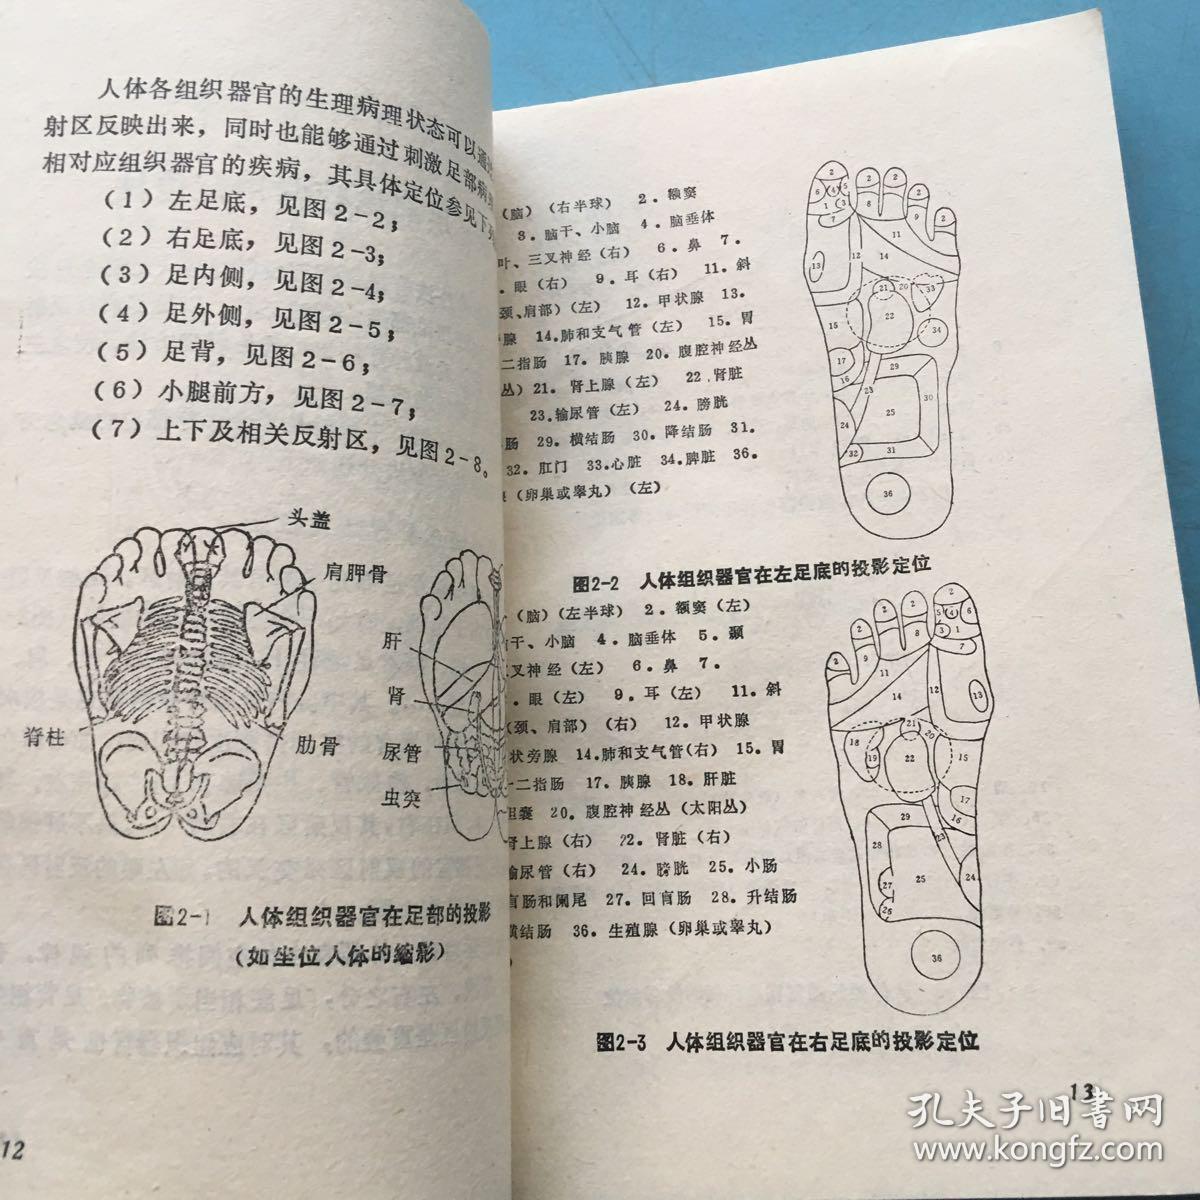 人体各组织器官的生理病理状态可以通
射区反映出来，同时也能够通过刺激足部病
相对应组织器官的疾病，其具体定位参见下列
（1）左足底，见图2-2；
（2）右足底，见图2-3；
（3）足内侧，见图2-4；
（4）足外侧，见图2-5；
（5）足背，见图2-6；
（6）小腿前方，见图2-7；
（7）上下及相关反射区，见图2-8。
头盖
肩胛骨
肝
肾
脊柱
肋骨
尿管
虫突
图2-1 人体组织器官在足部的投影
（如坐位人体的缩影）
12
（脑）（右半球） 2．额窦
3．脑干、小脑 4．脑垂体
叶、三叉神经（右） 6．鼻 7．
．眼（右） 9．耳（右） 11．斜
颈、肩部）（左） 12．甲状腺 13．
腺 14.肺和支气管（左） 15．胃
二指肠 17．胰腺 20．腹腔神经丛
丛）21．肾上腺（左） 22．肾脏
23.输尿管（左） 24．膀胱
肠 29．横结肠 30．降结肠 31．
32．肛门 33.心脏 34．脾脏 36．
（卵巢或睾丸）（左）
图2-2 人体组织器官在左足底的投影定位
（脑）（左半球） 2．额窦（左）
干、小脑 4．脑垂体 5．颞
叉神经（左） 6．鼻 7．
．眼（左） 9．耳（左） 11．斜
（颈、肩部）（右） 12．甲状腺
状旁腺 14.肺和支气管（右） 15．胃
十二指肠 17．胰腺 18．肝脏
胆囊 20．腹腔神经丛（太阳丛）
肾上腺（右） 22．肾脏（右）
输尿管（右） 24．膀胱 25．小肠
盲肠和阑尾 27．回盲肠 28．升结肠
横结肠 36．生殖腺（卵巢或睾丸）
图2-3 人体组织器官在右足底的投影定位
13
孔夫子旧书网
www.kongfz.com